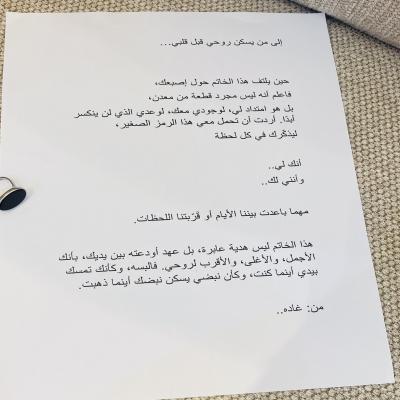 إلى من يسكن روحي قبل قلبي...
حين يلتف هذا الخاتم حول إصبعك،
فاعلم أنه ليس مجرد قطعة من معدن،
بل هو امتداد لي، لوجودي معك، لوعدي الذي لن ينكسر
أبدًا. أردت أن تحمل معي هذا الرمز الصغير،
ليذكّرك في كل لحظة
أنك لي..
وأنني لك..
مهما باعدت بيننا الأيام أو قرّبتنا اللحظات.
هذا الخاتم ليس هدية عابرة، بل عهد أودعته بين يديك، بأنك
الأجمل، والأغلى، والأقرب لروحي. فالبسه، وكأنك تمسك
بيدي أينما كنت، وكأن نبضي يسكن نبضك أينما ذهبت.
من: غاده..